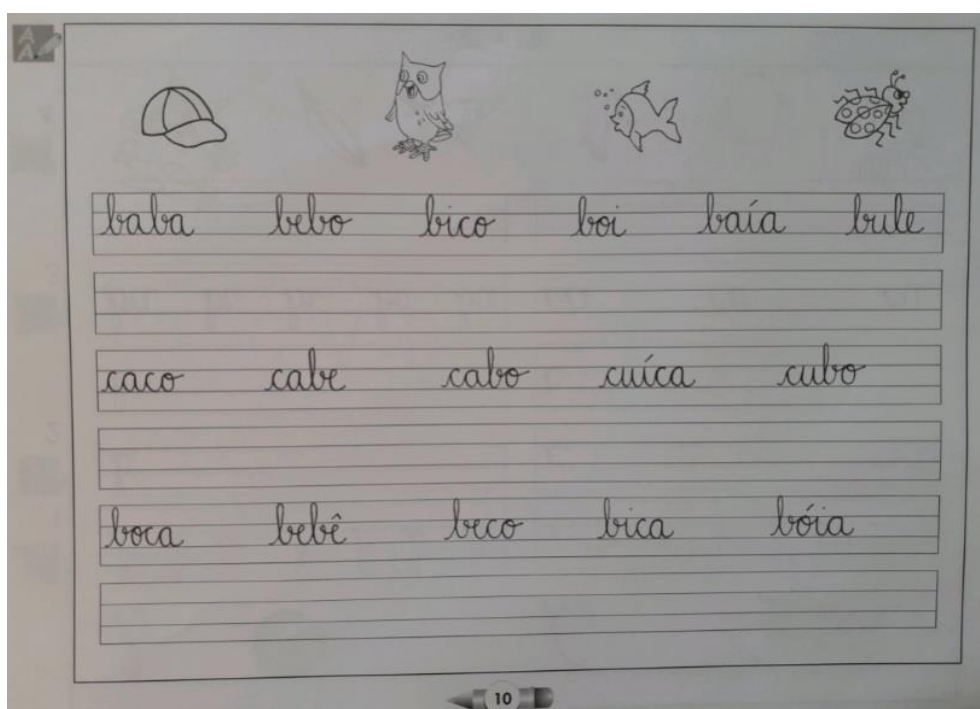 A
A
baba bebo bico boi baía bule
caco cabe cabo cuíca cubo
boca bebê beco bica bóia
10